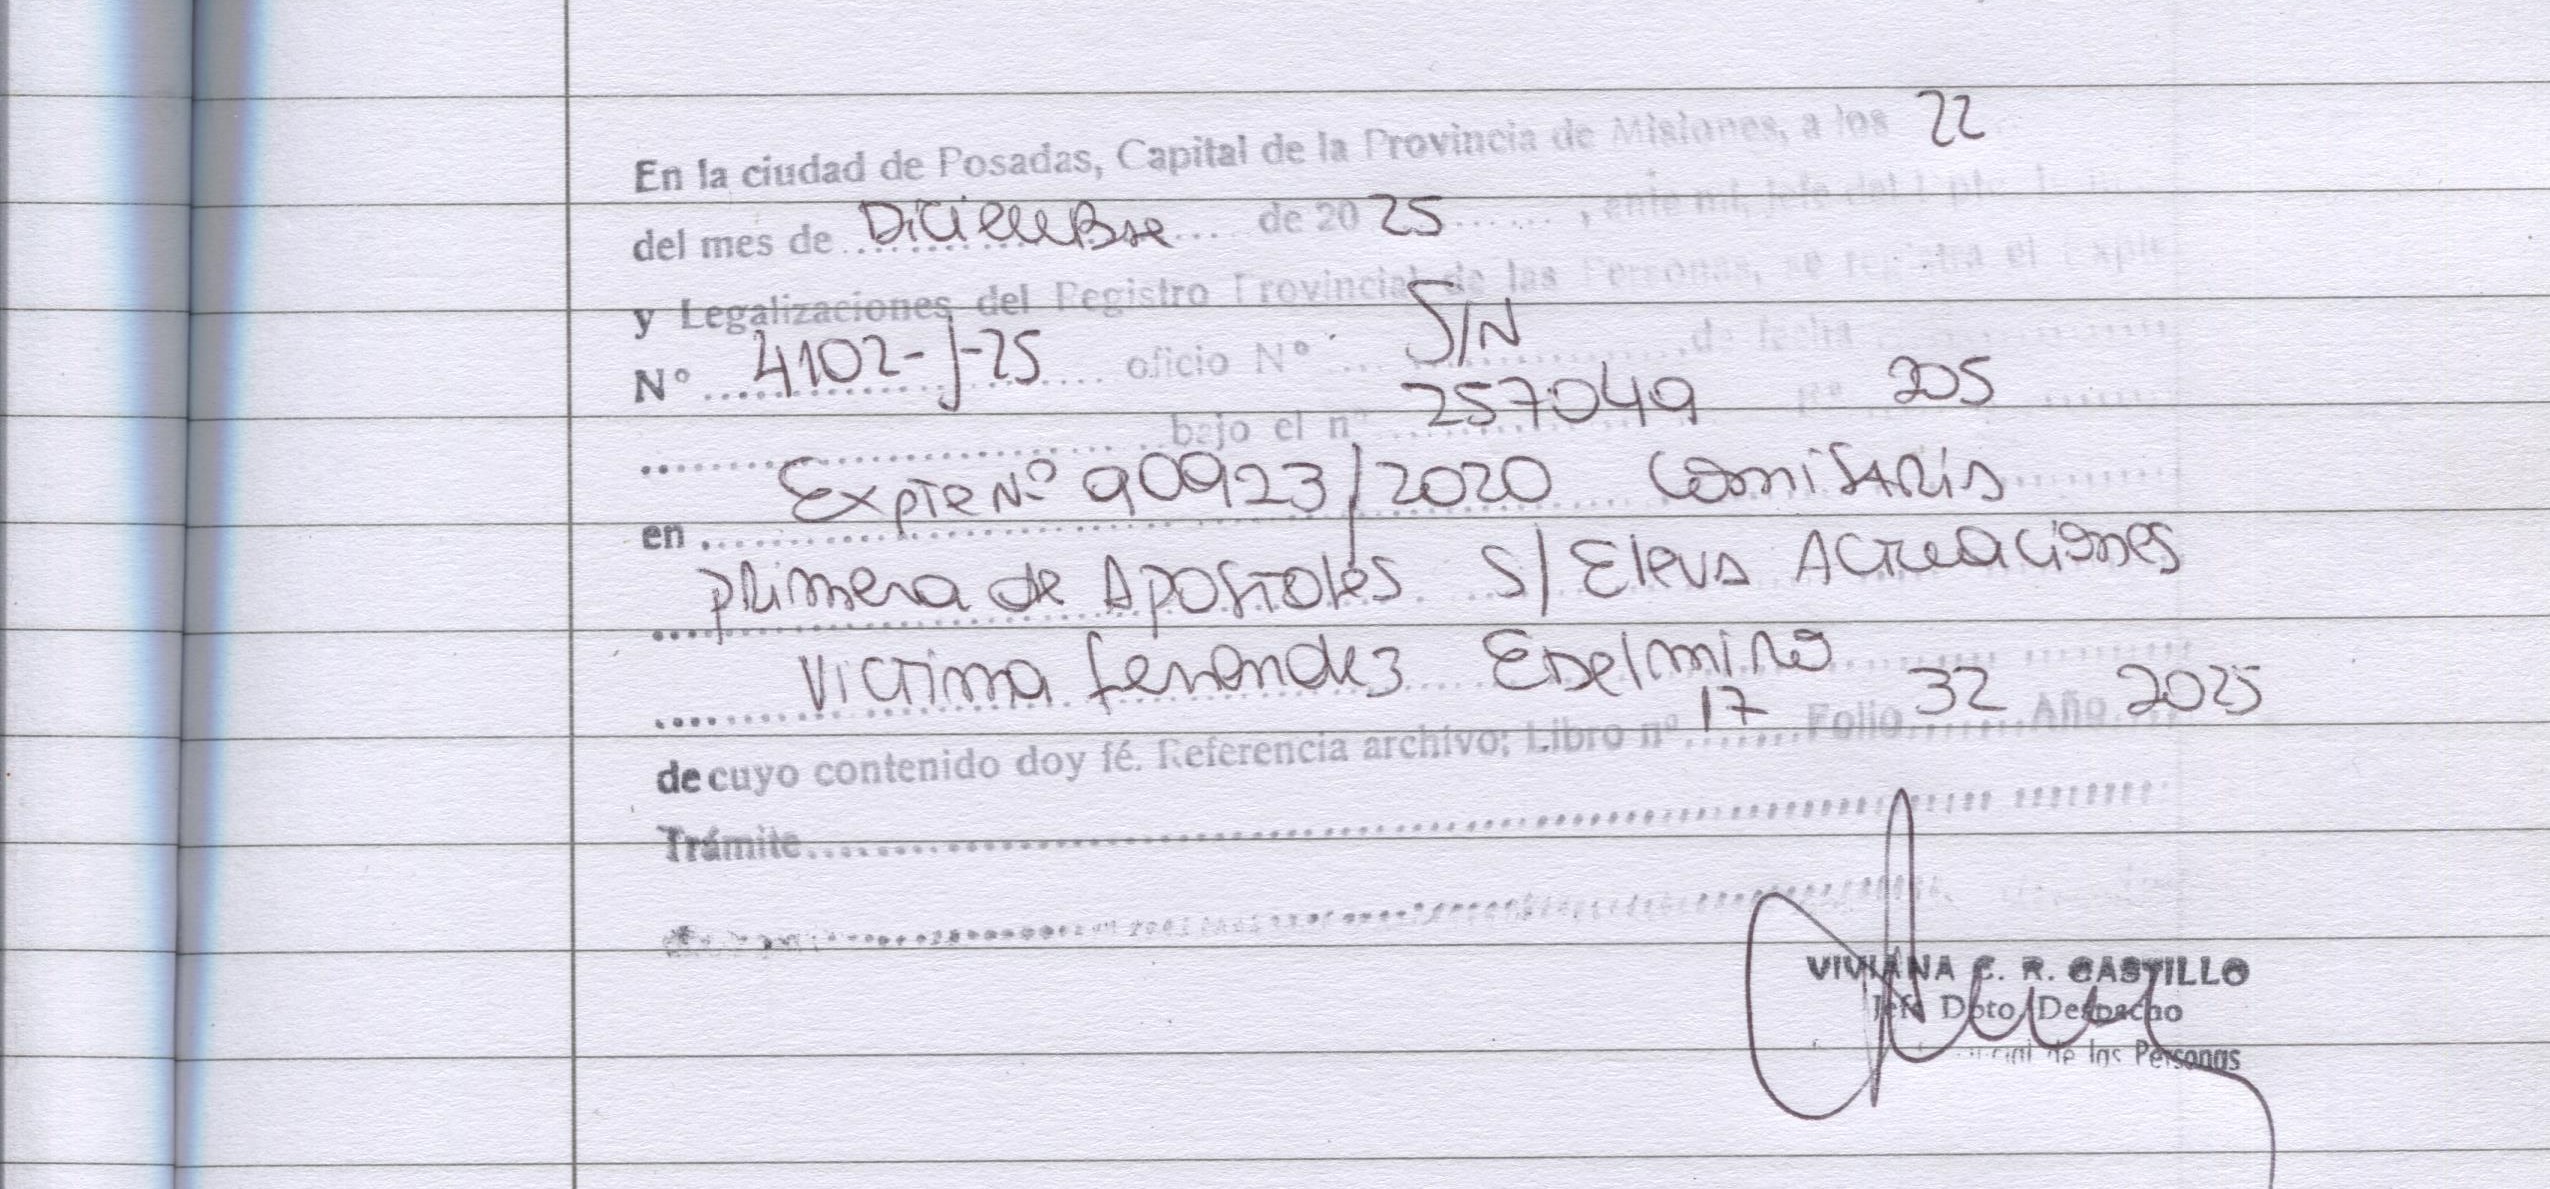 En la ciudad de Posadas, Capital de la Provincia de Misiones, a los 22
del mes de Diciembre de 20 25 , ante mi, Jefe del
y Legalizaciones del Registro Provincial de las Personas, se registra el Expte
Nº 4102-J-25 oficio Nº S/N ,de fecha
bajo el nº 257049 Fº 205
en Expte Nº 90923/2020 Comisaria
primera de Apostoles S/ Eleva Actuaciones
Victima fernandez Edelmiro
de cuyo contenido doy fé. Referencia archivo; Libro nº 17 Folio 32 Año 2025
Trámite
VIVIANA C. R. CASTILLO
Jefe Dpto Despacho
de las Personas